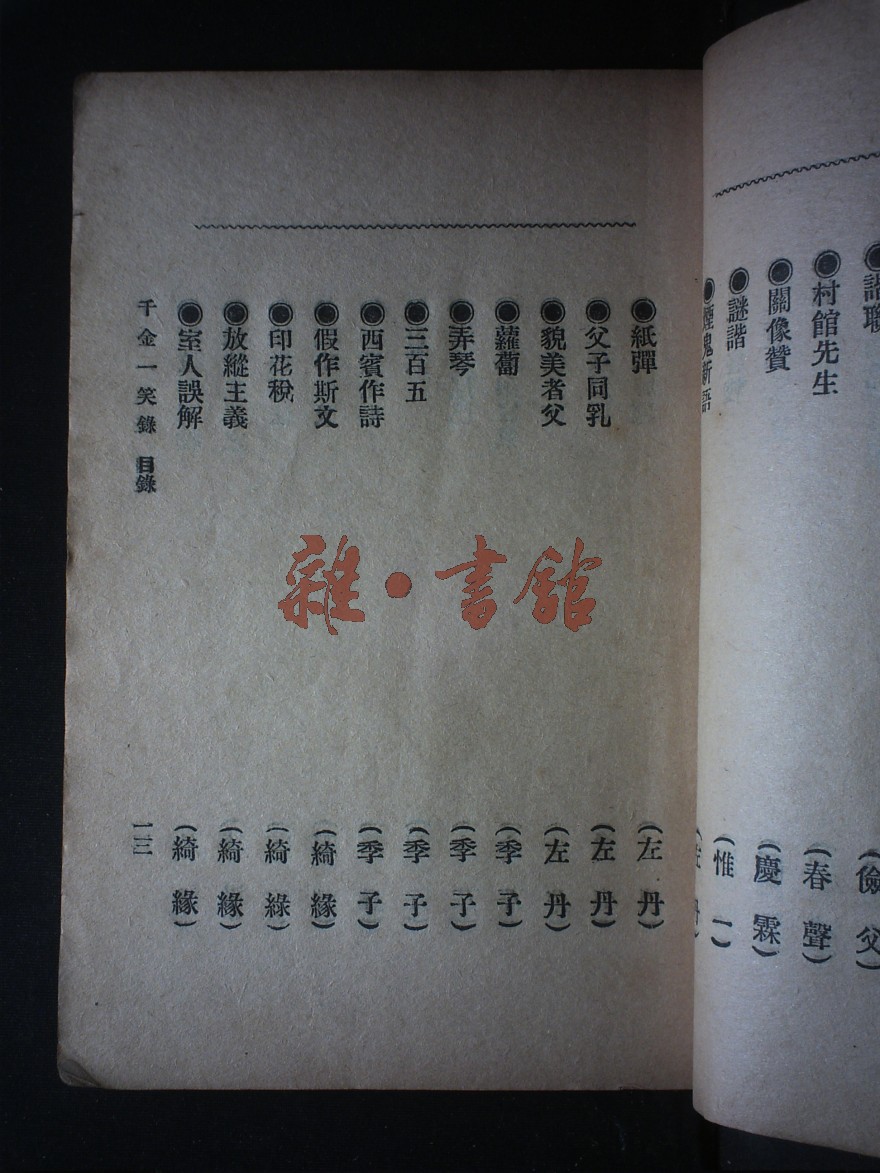 村館先生 （春聲）
關像贊 （慶霖）
謎諧 （惟一）
煙鬼新語
紙彈 （左丹）
父子同乳 （左丹）
貌美者父 （左丹）
蘿蔔 （季子）
弄琴 （季子）
三百五 （季子）
西賓作詩 （季子）
假作斯文 （綺緣）
印花稅 （綺緣）
放縱主義 （綺緣）
室人誤解 （綺緣）
千金一笑錄 目錄 一三
雜·書館